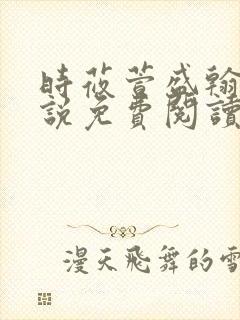 時莜萱盛翰
說免費閱讀
漫天飛舞的雪